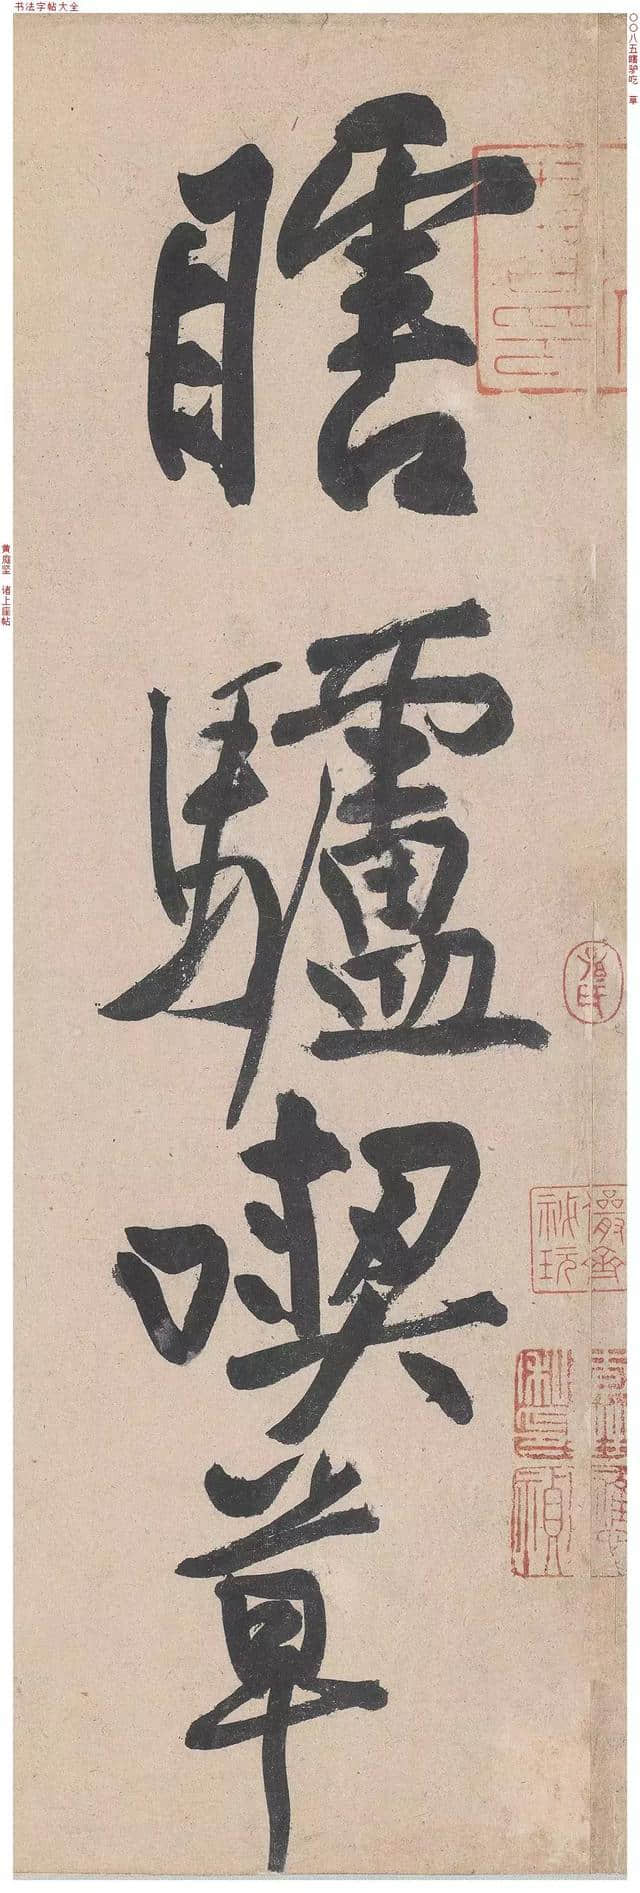 书法字帖大全
〇〇八五瞎驴吃 草
瞎驢喫草
黄庭坚 诸上座帖